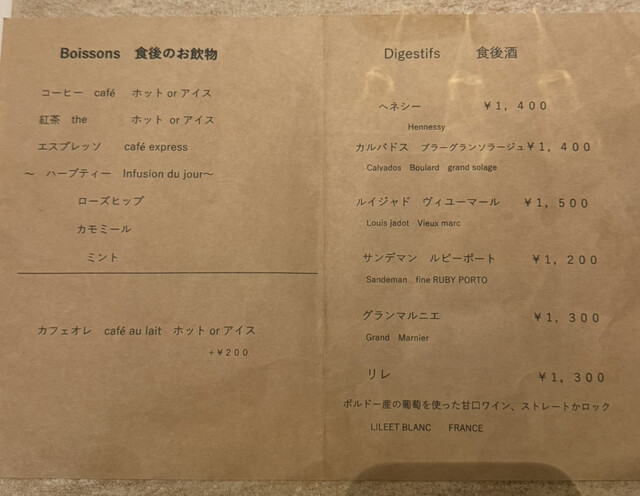 Boissons 食後のお飲物
コーヒー café ホット or アイス
紅茶 the ホット or アイス
エスプレッソ café express
～ ハーブティー Infusion du jour～
ローズヒップ
カモミール
ミント
カフェオレ café au lait ホット or アイス
+￥200
Digestifs 食後酒
ヘネシー ￥1,400
Hennessy
カルバドス ブラーグランソラージュ￥1,400
Calvados Boulard grand solage
ルイジャド ヴィユーマール ￥1,500
Louis jadot Vieux marc
サンデマン ルビーポート ￥1,200
Sandeman fine RUBY PORTO
グランマルニエ ￥1,300
Grand Marnier
リレ ￥1,300
ボルドー産の葡萄を使った甘口ワイン、ストレートかロック
LILEET BLANC FRANCE